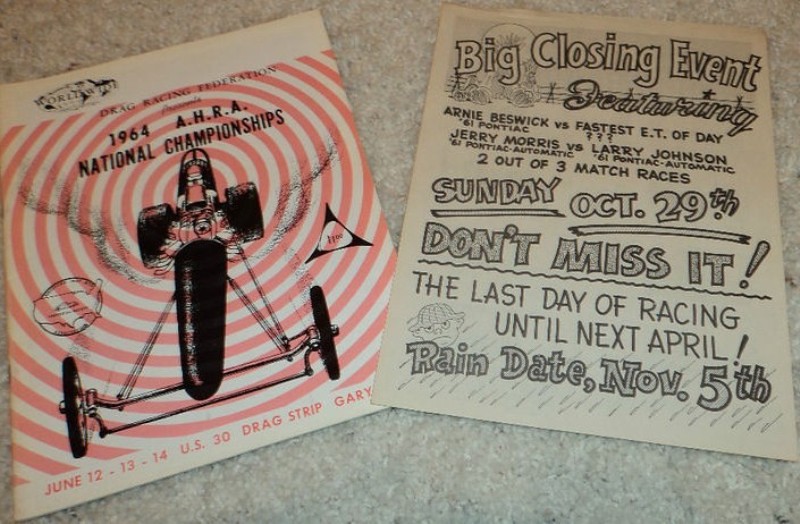 WORLD WIDE
DRAG RACING FEDERATION
Presents
1964 A.H.R.A.
NATIONAL CHAMPIONSHIPS
$1.00
JUNE 12 - 13 - 14 U.S. 30 DRAG STRIP GARY,
Big Closing Event
Featuring
ARNIE BESWICK VS FASTEST E.T. OF DAY
'61 PONTIAC ? ? ?
JERRY MORRIS VS LARRY JOHNSON
'61 PONTIAC-AUTOMATIC '61 PONTIAC-AUTOMATIC
2 OUT OF 3 MATCH RACES
SUNDAY OCT. 29th
DON'T MISS IT!
THE LAST DAY OF RACING
UNTIL NEXT APRIL!
Rain Date, Nov. 5th